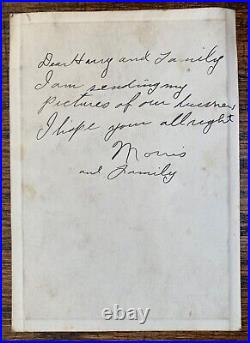 Dear Harry and Family
I am sending my
pictures of our business
I hope your allright
Morris
and Family